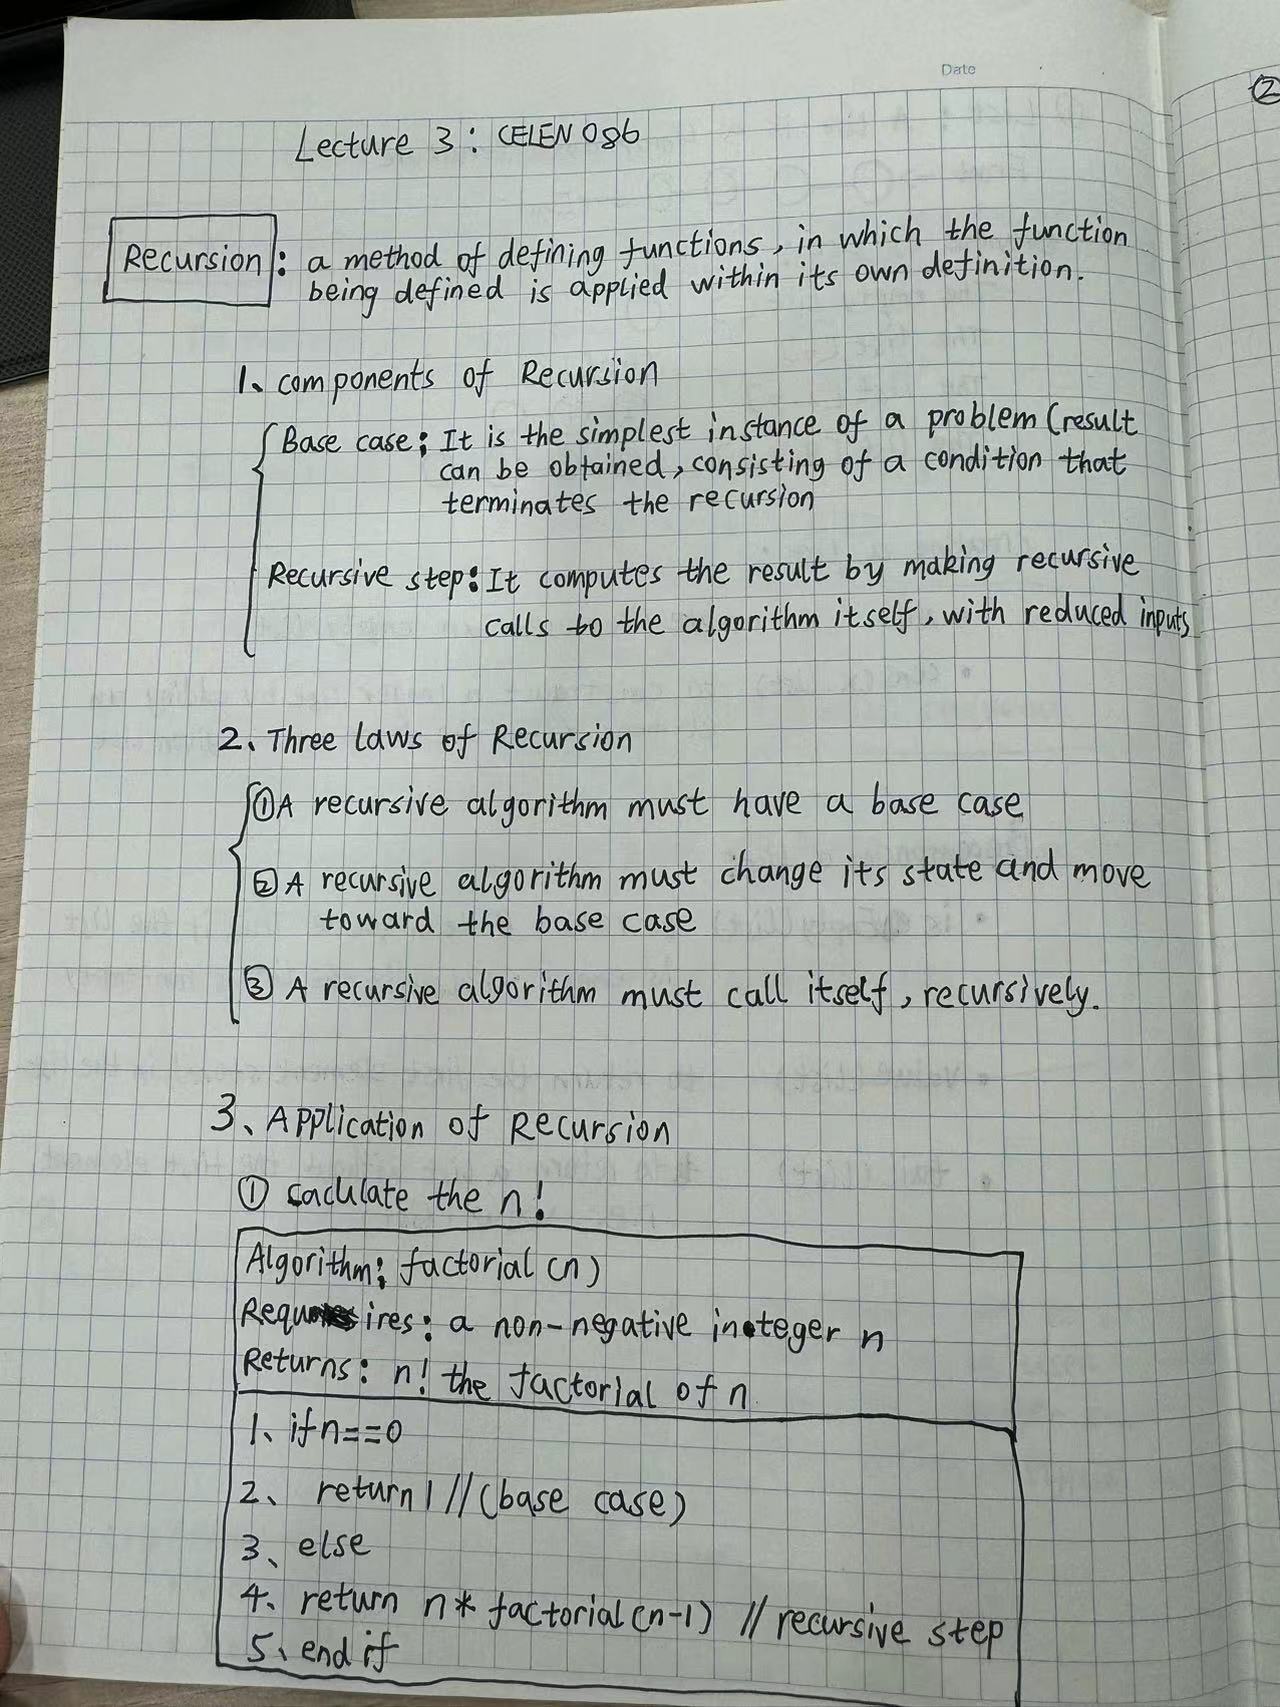 Date
②
Lecture 3: CELEN 086
Recursion: a method of defining functions, in which the function
being defined is applied within its own definition.
1、components of Recursion
Base case: It is the simplest instance of a problem (result
can be obtained, consisting of a condition that
terminates the recursion
Recursive step: It computes the result by making recursive
calls to the algorithm itself, with reduced inputs
2、Three laws of Recursion
①A recursive algorithm must have a base case
②A recursive algorithm must change its state and move
toward the base case
③A recursive algorithm must call itself, recursively.
3、Application of Recursion
① caculate the n!
Algorithm: factorial (n)
Requires: a non-negative integer n
Returns: n! the factorial of n
1、if n==0
2、return 1 //(base case)
3、else
4、return n* factorial(n-1) // recursive step
5、end if